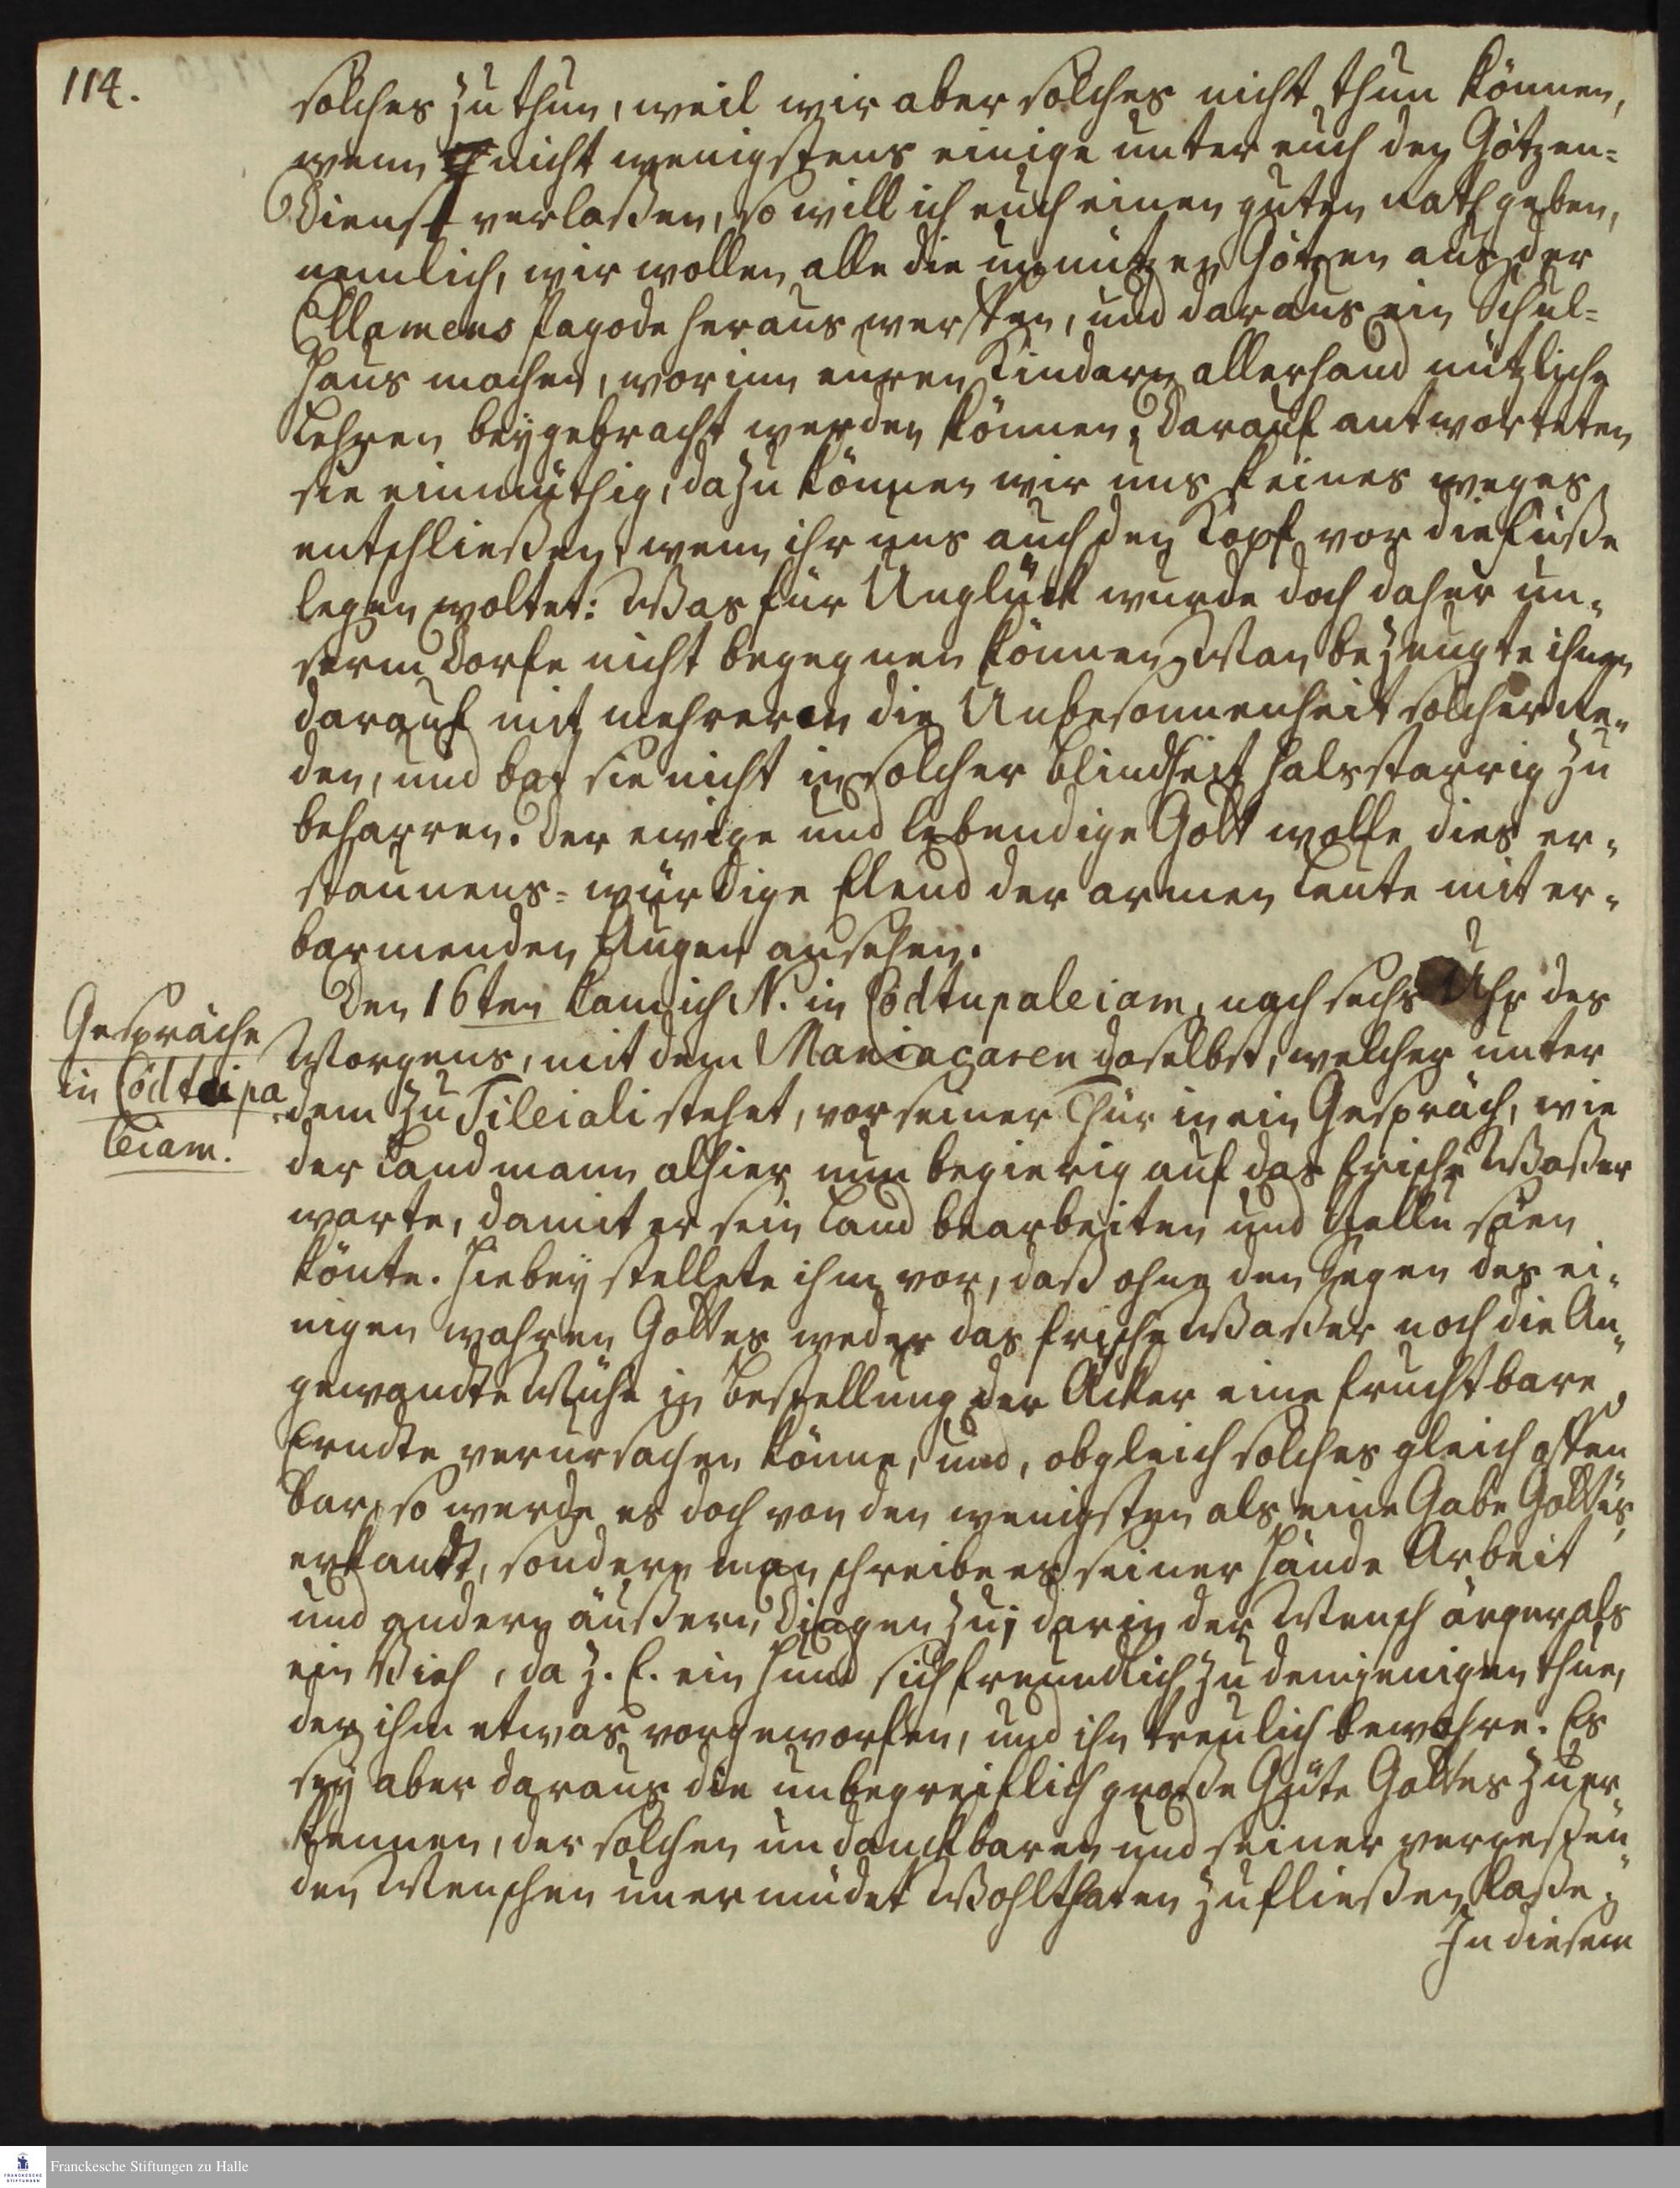 114.
solches zu thun, weil wir aber solches nicht thun können,
wenn nicht wenigstens einige unter euch den Götzen=
Dienst verlaßen, so will ich euch einen guten rath geben,
nemlich, wir wollen alle die unnützen Götzen aus der
Ellamens Pagode heraus werffen, und daraus ein Schul=
Haus machen, worinn euren Kindern allerhand nützliche
Lehren beygebracht werden können, Darauf antworteten
sie einmüthig, dazu können wir uns keines weges
entschließen, wenn ihr uns auch den Kopf vor die Füße
legen woltet: Was für Unglück wurde doch daher un-
serm Dorfe nicht begegnen können, Man bezeugte ihnen
darauf mit mehreren die Unbesonnenheit solcher Re-
den, und bat sie nicht in solcher Blindheit halsstarrig zu
beharren. Der ewige und lebendige Gott wolle dies er-
staunens=würdige Elend der armen Leute mit er-
barmenden Augen ansehen.
Gespräche
in Codtupa
leiam.
Den 16ten kam ich N. in Codtupaleiam, nach sechs Uhr des
Morgens, mit dem Maniacaren daselbst, welcher unter
dem zu Tileiali stehet, vor seiner Thür in ein Gespräch, wie
der Landmann alhier nun begierig auf das frische Waßer
warte, damit er sein Land bearbeiten und Nellu säen
könte. Hiebey stellete ihm vor, daß ohne den Segen des ei-
nigen wahren Gottes weder das frische Waßer noch die An-
gewandte Mühe in Bestellung der Äcker eine fruchtbare
Erndte verursachen könne, und, obgleich solches gleich offen
bar, so werde es doch von den wenigsten als eine Gabe Gottes
erkandt, sondern man schreibe es seiner Hände Arbeit
und andern äußern Dingen zu; darin der Mensch ärger als
ein Vieh, da z. E. ein Hund sich freundlich zu demjenigen thue,
der ihm etwas vorgeworfen, und ihn treulich bewahre. Es
sey aber daraus die unbegreiflich große Güte Gottes zu er-
kennen, der solchen undanckbaren und seiner vergeßen-
den Menschen unermüdet Wohlthaten zufließen laße.
In diesem
Franckesche Stiftungen zu Halle